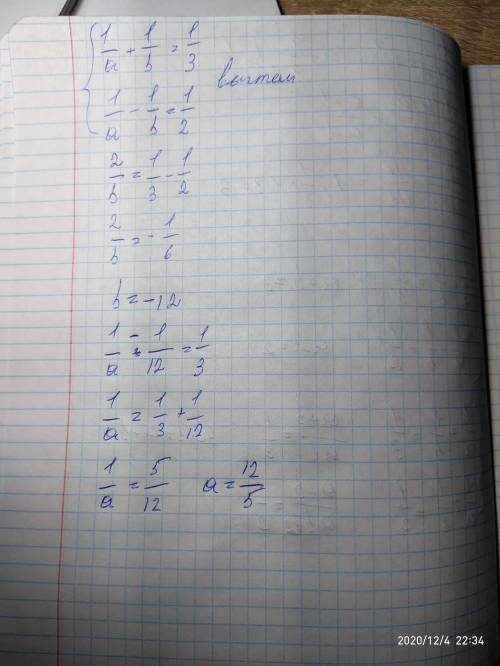 1/a + 1/b = 1/3
вычтем
1/a - 1/b = 1/2
2/b = 1/3 - 1/2
2/b = -1/6
b = -12
1/a - 1/12 = 1/3
1/a = 1/3 + 1/12
1/a = 5/12 a = 12/5
2020/12/4 22:34